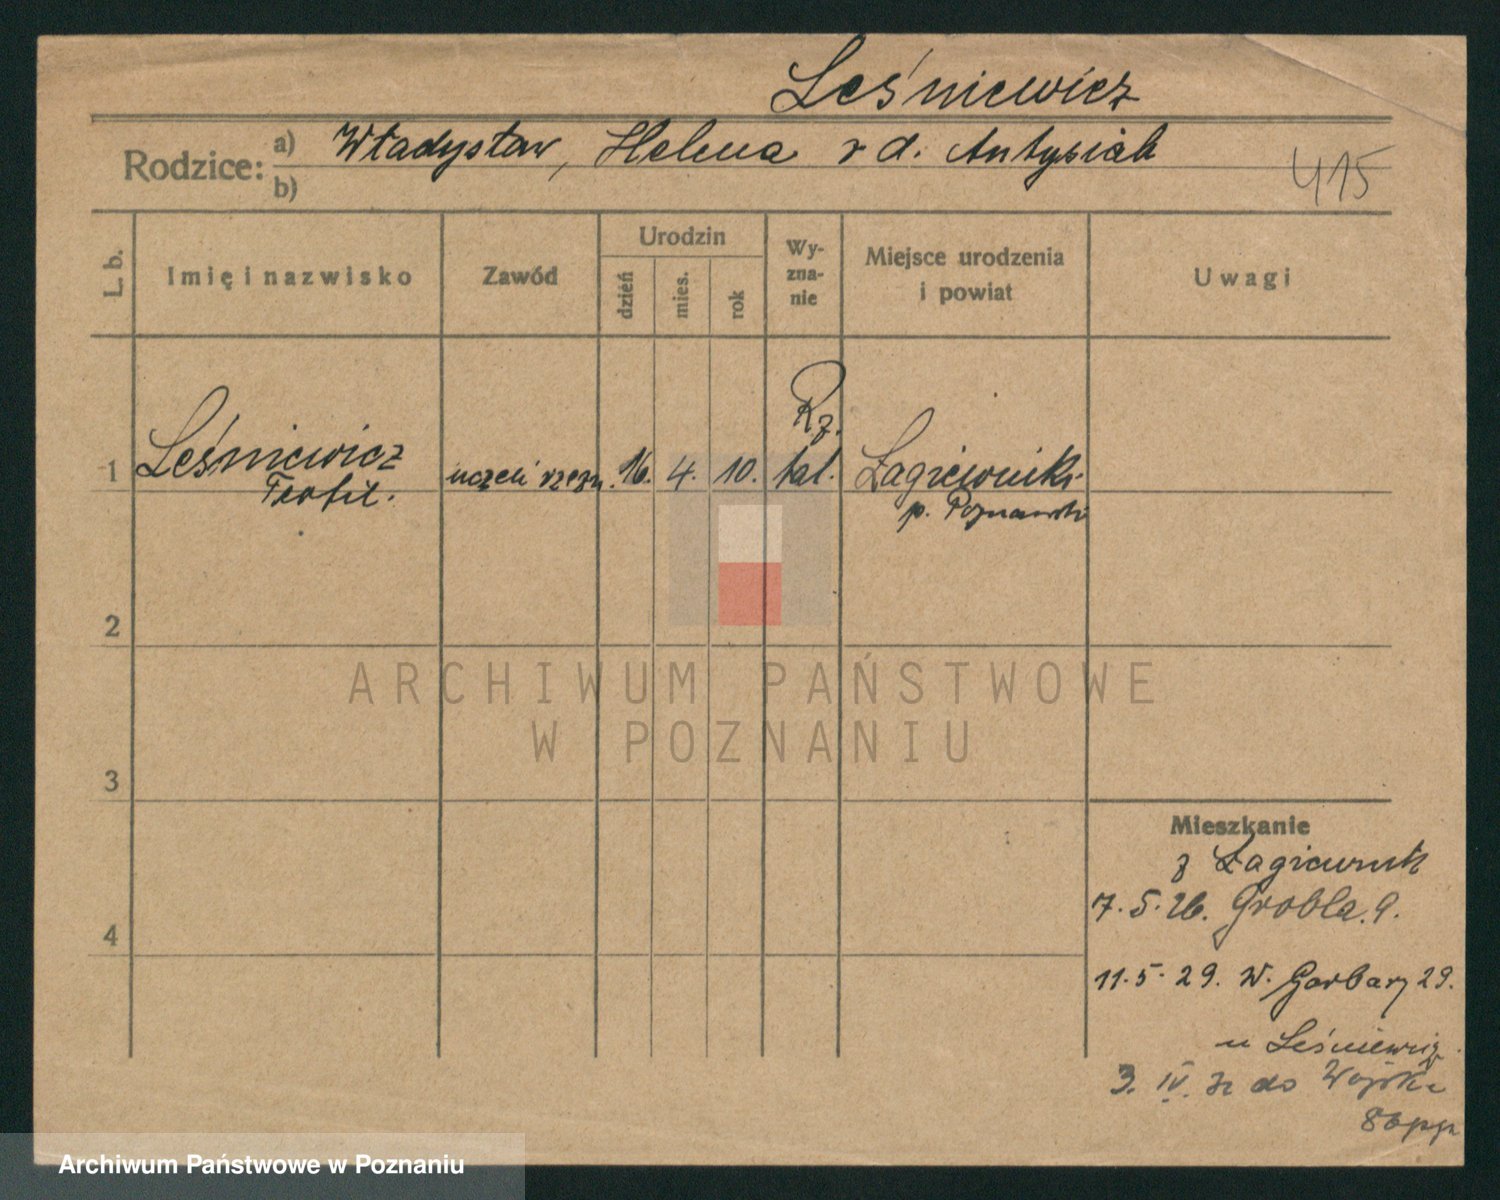 Leśniewicz
Rodzice: a) Władysław, Helena r d. Antysiak
b)
415
L. b.
Imię i nazwisko
Zawód
Urodzin
dzień
mies.
rok
Wy-
zna-
nie
Miejsce urodzenia
i powiat
Uwagi
1
Leśniewicz
Teofil.
uczeń rzeźn.
16.
4.
10.
Rz.
kat.
Łagiewniki
p. Poznański
2
3
4
Mieszkanie
z Łagiewnik
7. 5. 26. Grobla. 9.
11. 5. 29. W. Garbary 29.
u Leśniewicz
3. IV. do Wojska
ARCHIWUM PAŃSTWOWE
W POZNANIU
Archiwum Państwowe w Poznaniu